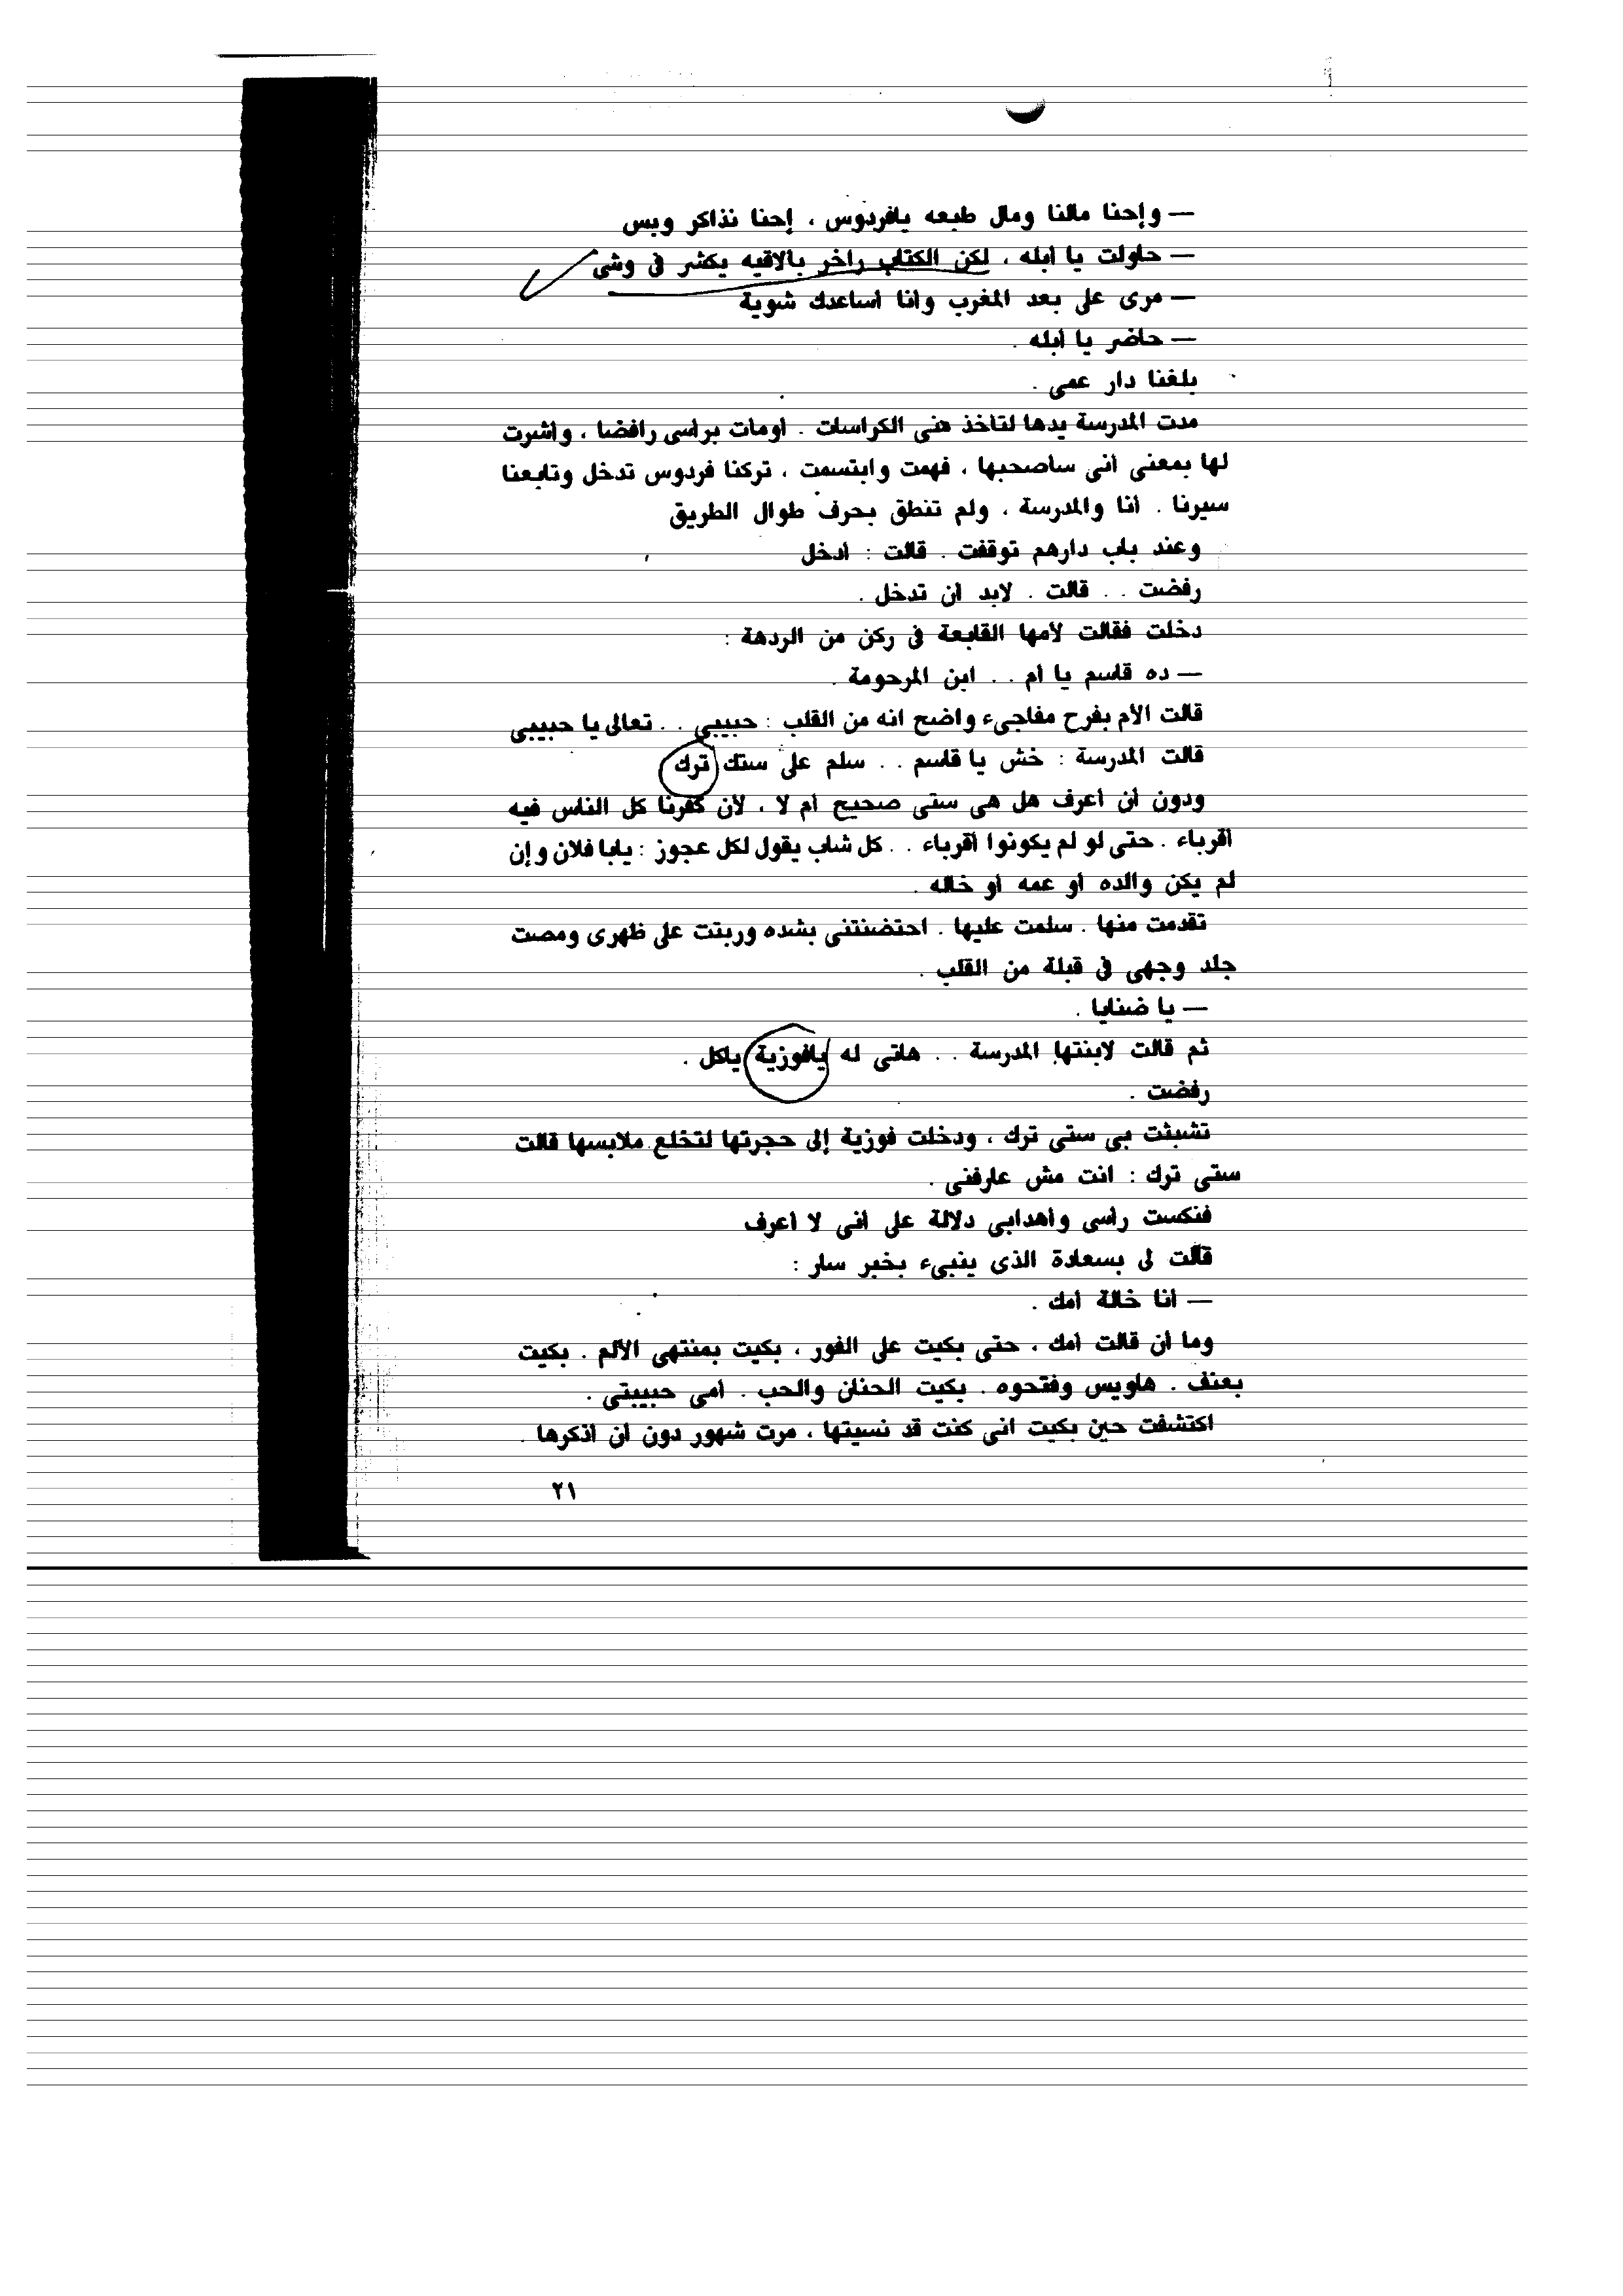 — وإحنا مالنا ومال طبعه يافردوس ، إحنا نذاكر وبس
— حاولت يا أبله ، لكن الكتاب راخر بالاقيه يكشر فى وشى
— مرى على بعد المغرب وأنا أساعدك شوية
— حاضر يا أبله .
بلغنا دار عمى .
مدت المدرسة يدها لتأخذ منى الكراسات . أومأت برأسى رافضا ، وأشرت
لها بمعنى أنى سأصحبها ، فهمت وابتسمت ، تركنا فردوس تدخل وتابعنا
سيرنا . أنا والمدرسة ، ولم تنطق بحرف طوال الطريق
وعند باب دارهم توقفت . قالت : أدخل
رفضت . . قالت . لابد أن تدخل .
دخلت فقالت لأمها القابعة فى ركن من الردهة :
— ده قاسم يا أم . . ابن المرحومة .
قالت الأم بفرح مفاجىء واضح أنه من القلب : حبيبى . . تعالى يا حبيبى
قالت المدرسة : خش يا قاسم . . سلم على ستك ترك
ودون أن أعرف هل هى ستى صحيح أم لا ، لأن كفرنا كل الناس فيه
أقرباء . حتى لو لم يكونوا أقرباء . . كل شاب يقول لكل عجوز : يابا فلان وإن
لم يكن والده أو عمه أو خاله .
تقدمت منها . سلمت عليها . احتضنتنى بشده وربتت على ظهرى ومصت
جلد وجهى فى قبلة من القلب .
— يا ضنايا .
ثم قالت لابنتها المدرسة . . هاتى له يافوزية ياكل .
رفضت .
تشبثت بى ستى ترك ، ودخلت فوزية إلى حجرتها لتخلع ملابسها قالت
ستى ترك : انت مش عارفنى .
فنكست رأسى وأهدابى دلالة على أنى لا أعرف
قالت لى بسعادة الذى ينبىء بخبر سار :
— أنا خالة أمك .
وما أن قالت أمك ، حتى بكيت على الفور ، بكيت بمنتهى الألم . بكيت
بعنف . هاويس وفتحوه . بكيت الحنان والحب . أمى حبيبتى .
اكتشفت حين بكيت أنى كنت قد نسيتها ، مرت شهور دون أن أذكرها .
٢١